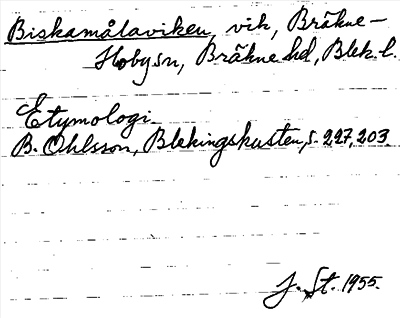 Biskamålaviken, vik, Bräkne-
Hobysn, Bräkne hd, Blek. l.
Etymologi.
B. Ohlsson, Blekingskusten, s. 227, 203.
J. St. 1955.